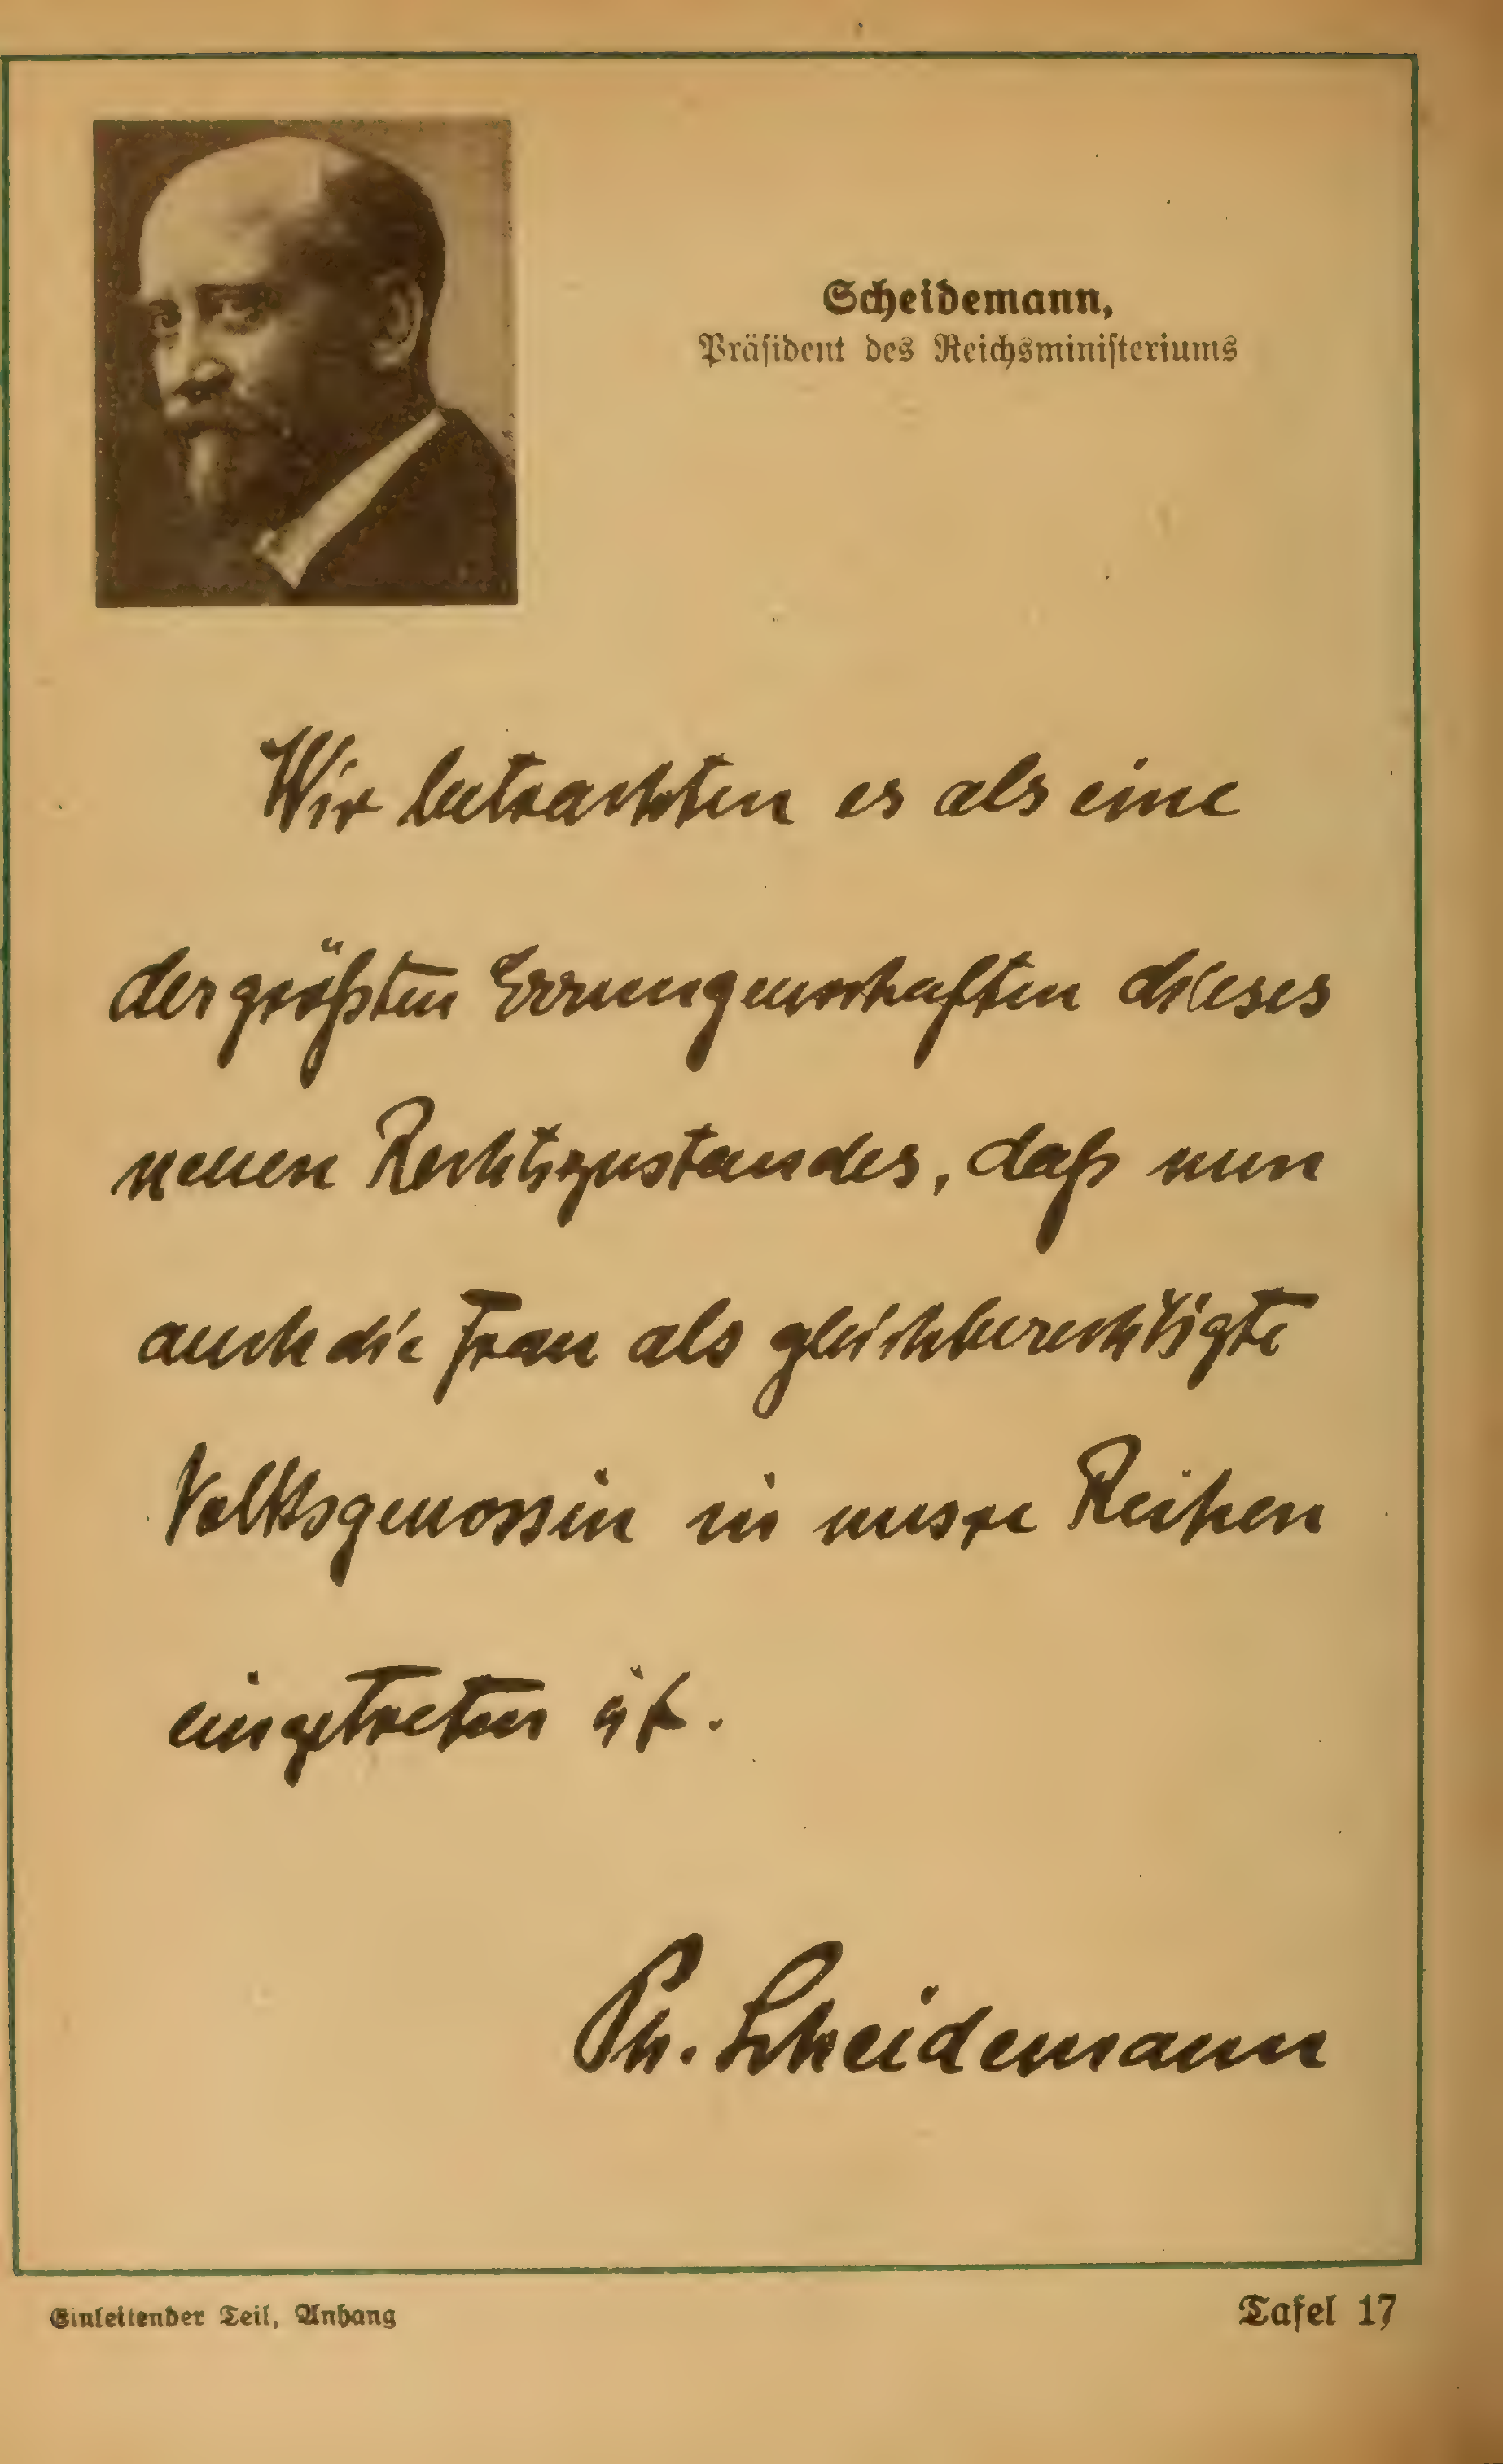 Scheidemann,
Präsident des Reichsministeriums
Wir betrachten es als eine
der größten Errungenschaften dieses
neuen Rechtszustandes, daß nun
auch die Frau als gleichberechtigte
Volksgenossin in unsre Reihen
eingetreten ist.
Ph. Scheidemann
Einleitender Teil, Anhang
Tafel 17